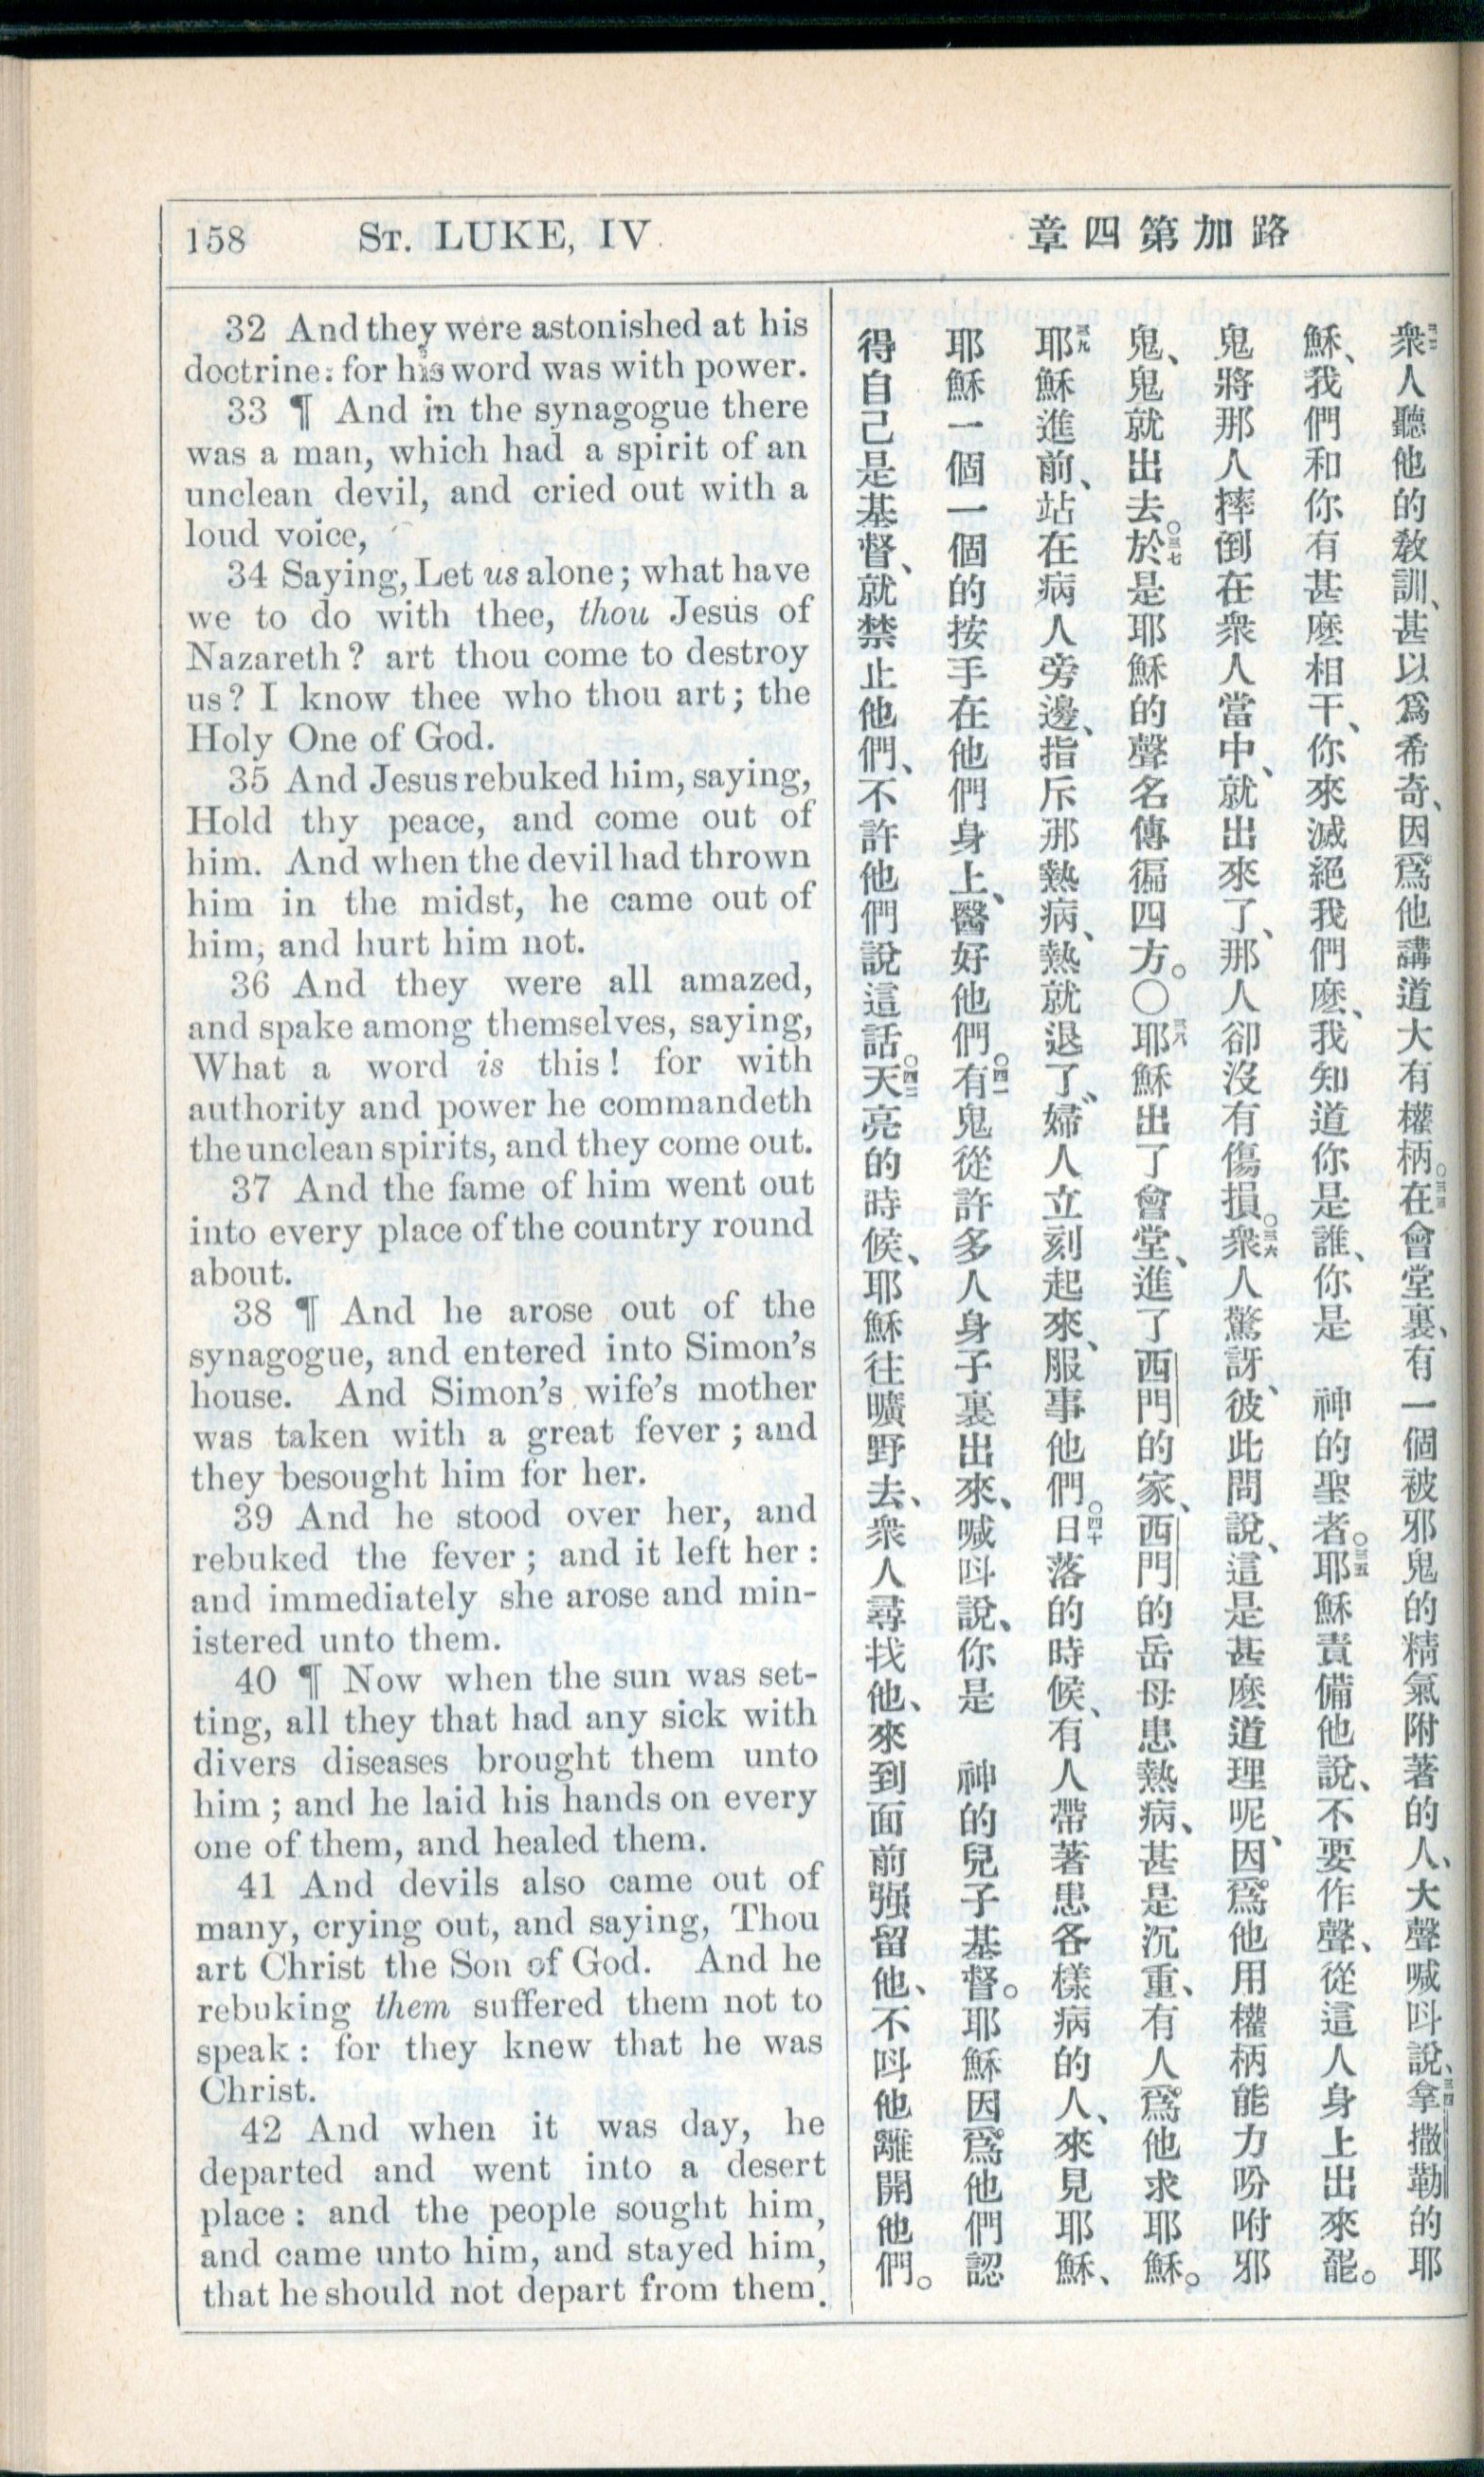 158 ST. LUKE, IV 章四第加路
32 And they were astonished at his
doctrine: for his word was with power.
33 ¶ And in the synagogue there
was a man, which had a spirit of an
unclean devil, and cried out with a
loud voice,
34 Saying, Let us alone; what have
we to do with thee, thou Jesus of
Nazareth? art thou come to destroy
us? I know thee who thou art; the
Holy One of God.
35 And Jesus rebuked him, saying,
Hold thy peace, and come out of
him. And when the devil had thrown
him in the midst, he came out of
him, and hurt him not.
36 And they were all amazed,
and spake among themselves, saying,
What a word is this! for with
authority and power he commandeth
the unclean spirits, and they come out.
37 And the fame of him went out
into every place of the country round
about.
38 ¶ And he arose out of the
synagogue, and entered into Simon's
house. And Simon's wife's mother
was taken with a great fever; and
they besought him for her.
39 And he stood over her, and
rebuked the fever; and it left her:
and immediately she arose and min-
istered unto them.
40 ¶ Now when the sun was set-
ting, all they that had any sick with
divers diseases brought them unto
him; and he laid his hands on every
one of them, and healed them.
41 And devils also came out of
many, crying out, and saying, Thou
art Christ the Son of God. And he
rebuking them suffered them not to
speak: for they knew that he was
Christ.
42 And when it was day, he
departed and went into a desert
place: and the people sought him,
and came unto him, and stayed him,
that he should not depart from them.
三二衆人聽他的敎訓、甚以爲希奇、因爲他講道大有權柄。三三在會堂裏、有一個被邪鬼的精氣附著的人、大聲喊呌說、三四拿撒勒的耶
穌、我們和你有甚麽相干、你來滅絕我們麽、我知道你是誰、你是 神的聖者。三五耶穌責備他說、不要作聲、從這人身上出來罷。
鬼將那人摔倒在衆人當中、就出來了、那人卻沒有傷損。三六衆人驚訝、彼此問說、這是甚麽道理呢、因爲他用權柄能力吩咐邪
鬼、鬼就出去。三七於是耶穌的聲名傳徧四方。〇三八耶穌出了會堂、進了西門的家、西門的岳母患熱病、甚是沉重、有人爲他求耶穌。
三九耶穌進前、站在病人旁邊、指斥那熱病、熱就退了、婦人立刻起來、服事他們。四十日落的時候、有人帶著患各樣病的人、來見耶穌、
耶穌一個一個的按手在他們身上、醫好他們。四一有鬼從許多人身子裏出來、喊呌說、你是 神的兒子基督。耶穌因爲他們認
得自己是基督、就禁止他們、不許他們說這話。四二天亮的時候、耶穌往曠野去、衆人尋找他、來到面前强留他、不呌他離開他們。